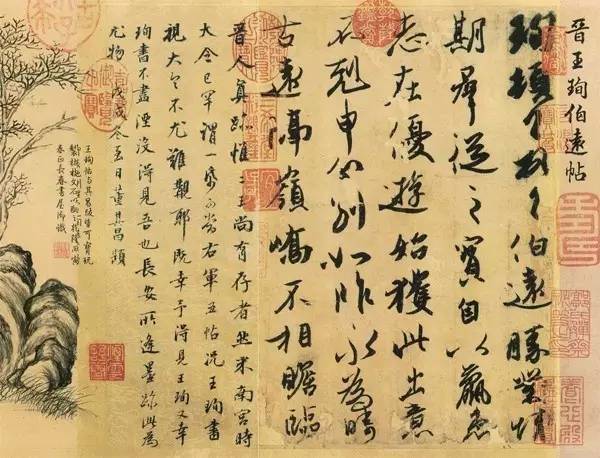 晉王珣伯遠帖
珣頓首頓首伯遠勝業情
期群從之寶自以羸患
志在優遊始獲此出意
不剋申分別如昨永為疇
古遠隔嶺嶠不相瞻臨
晉人真跡惟二王尚有存者然米南宮時
大令已罕謂一帋可當右軍五帖況王珣書
視大令不尤難覯耶既幸予得見王珣又幸
珣書不盡湮沒得見吾也長安所逢墨跡此為
尤物戊戌冬至日董其昌題
王珣帖與其昌跋皆可寶玩
春正長春書屋御識